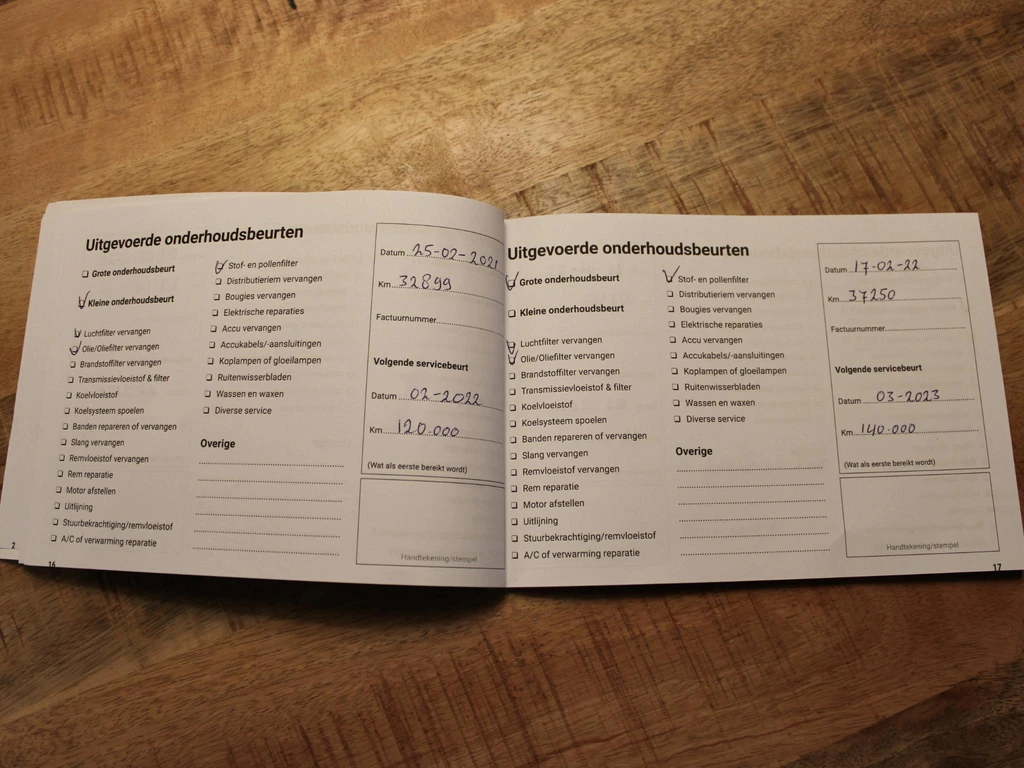 Uitgevoerde onderhoudsbeurten
Grote onderhoudsbeurt
Kleine onderhoudsbeurt
Luchtfilter vervangen
Olie/Oliefilter vervangen
Brandstoffilter vervangen
Transmissievloeistof & filter
Koelvloeistof
Koelsysteem spoelen
Banden repareren of vervangen
Slang vervangen
Remvloeistof vervangen
Rem reparatie
Motor afstellen
Uitlijning
Stuurbekrachtiging/remvloeistof
A/C of verwarming reparatie
Stof- en pollenfilter
Distributieriem vervangen
Bougies vervangen
Elektrische reparaties
Accu vervangen
Accukabels/-aansluitingen
Koplampen of gloeilampen
Ruitenwisserbladen
Wassen en waxen
Diverse service
Overige
Datum 25-02-2021
Km 32899
Factuurnummer
Volgende servicebeurt
Datum 02-2022
Km 120.000
(Wat als eerste bereikt wordt)
Handtekening/stempel
2
16
Uitgevoerde onderhoudsbeurten
Grote onderhoudsbeurt
Kleine onderhoudsbeurt
Luchtfilter vervangen
Olie/Oliefilter vervangen
Brandstoffilter vervangen
Transmissievloeistof & filter
Koelvloeistof
Koelsysteem spoelen
Banden repareren of vervangen
Slang vervangen
Remvloeistof vervangen
Rem reparatie
Motor afstellen
Uitlijning
Stuurbekrachtiging/remvloeistof
A/C of verwarming reparatie
Stof- en pollenfilter
Distributieriem vervangen
Bougies vervangen
Elektrische reparaties
Accu vervangen
Accukabels/-aansluitingen
Koplampen of gloeilampen
Ruitenwisserbladen
Wassen en waxen
Diverse service
Overige
Datum 17-02-22
Km 37250
Factuurnummer
Volgende servicebeurt
Datum 03-2023
Km 140.000
(Wat als eerste bereikt wordt)
Handtekening/stempel
17